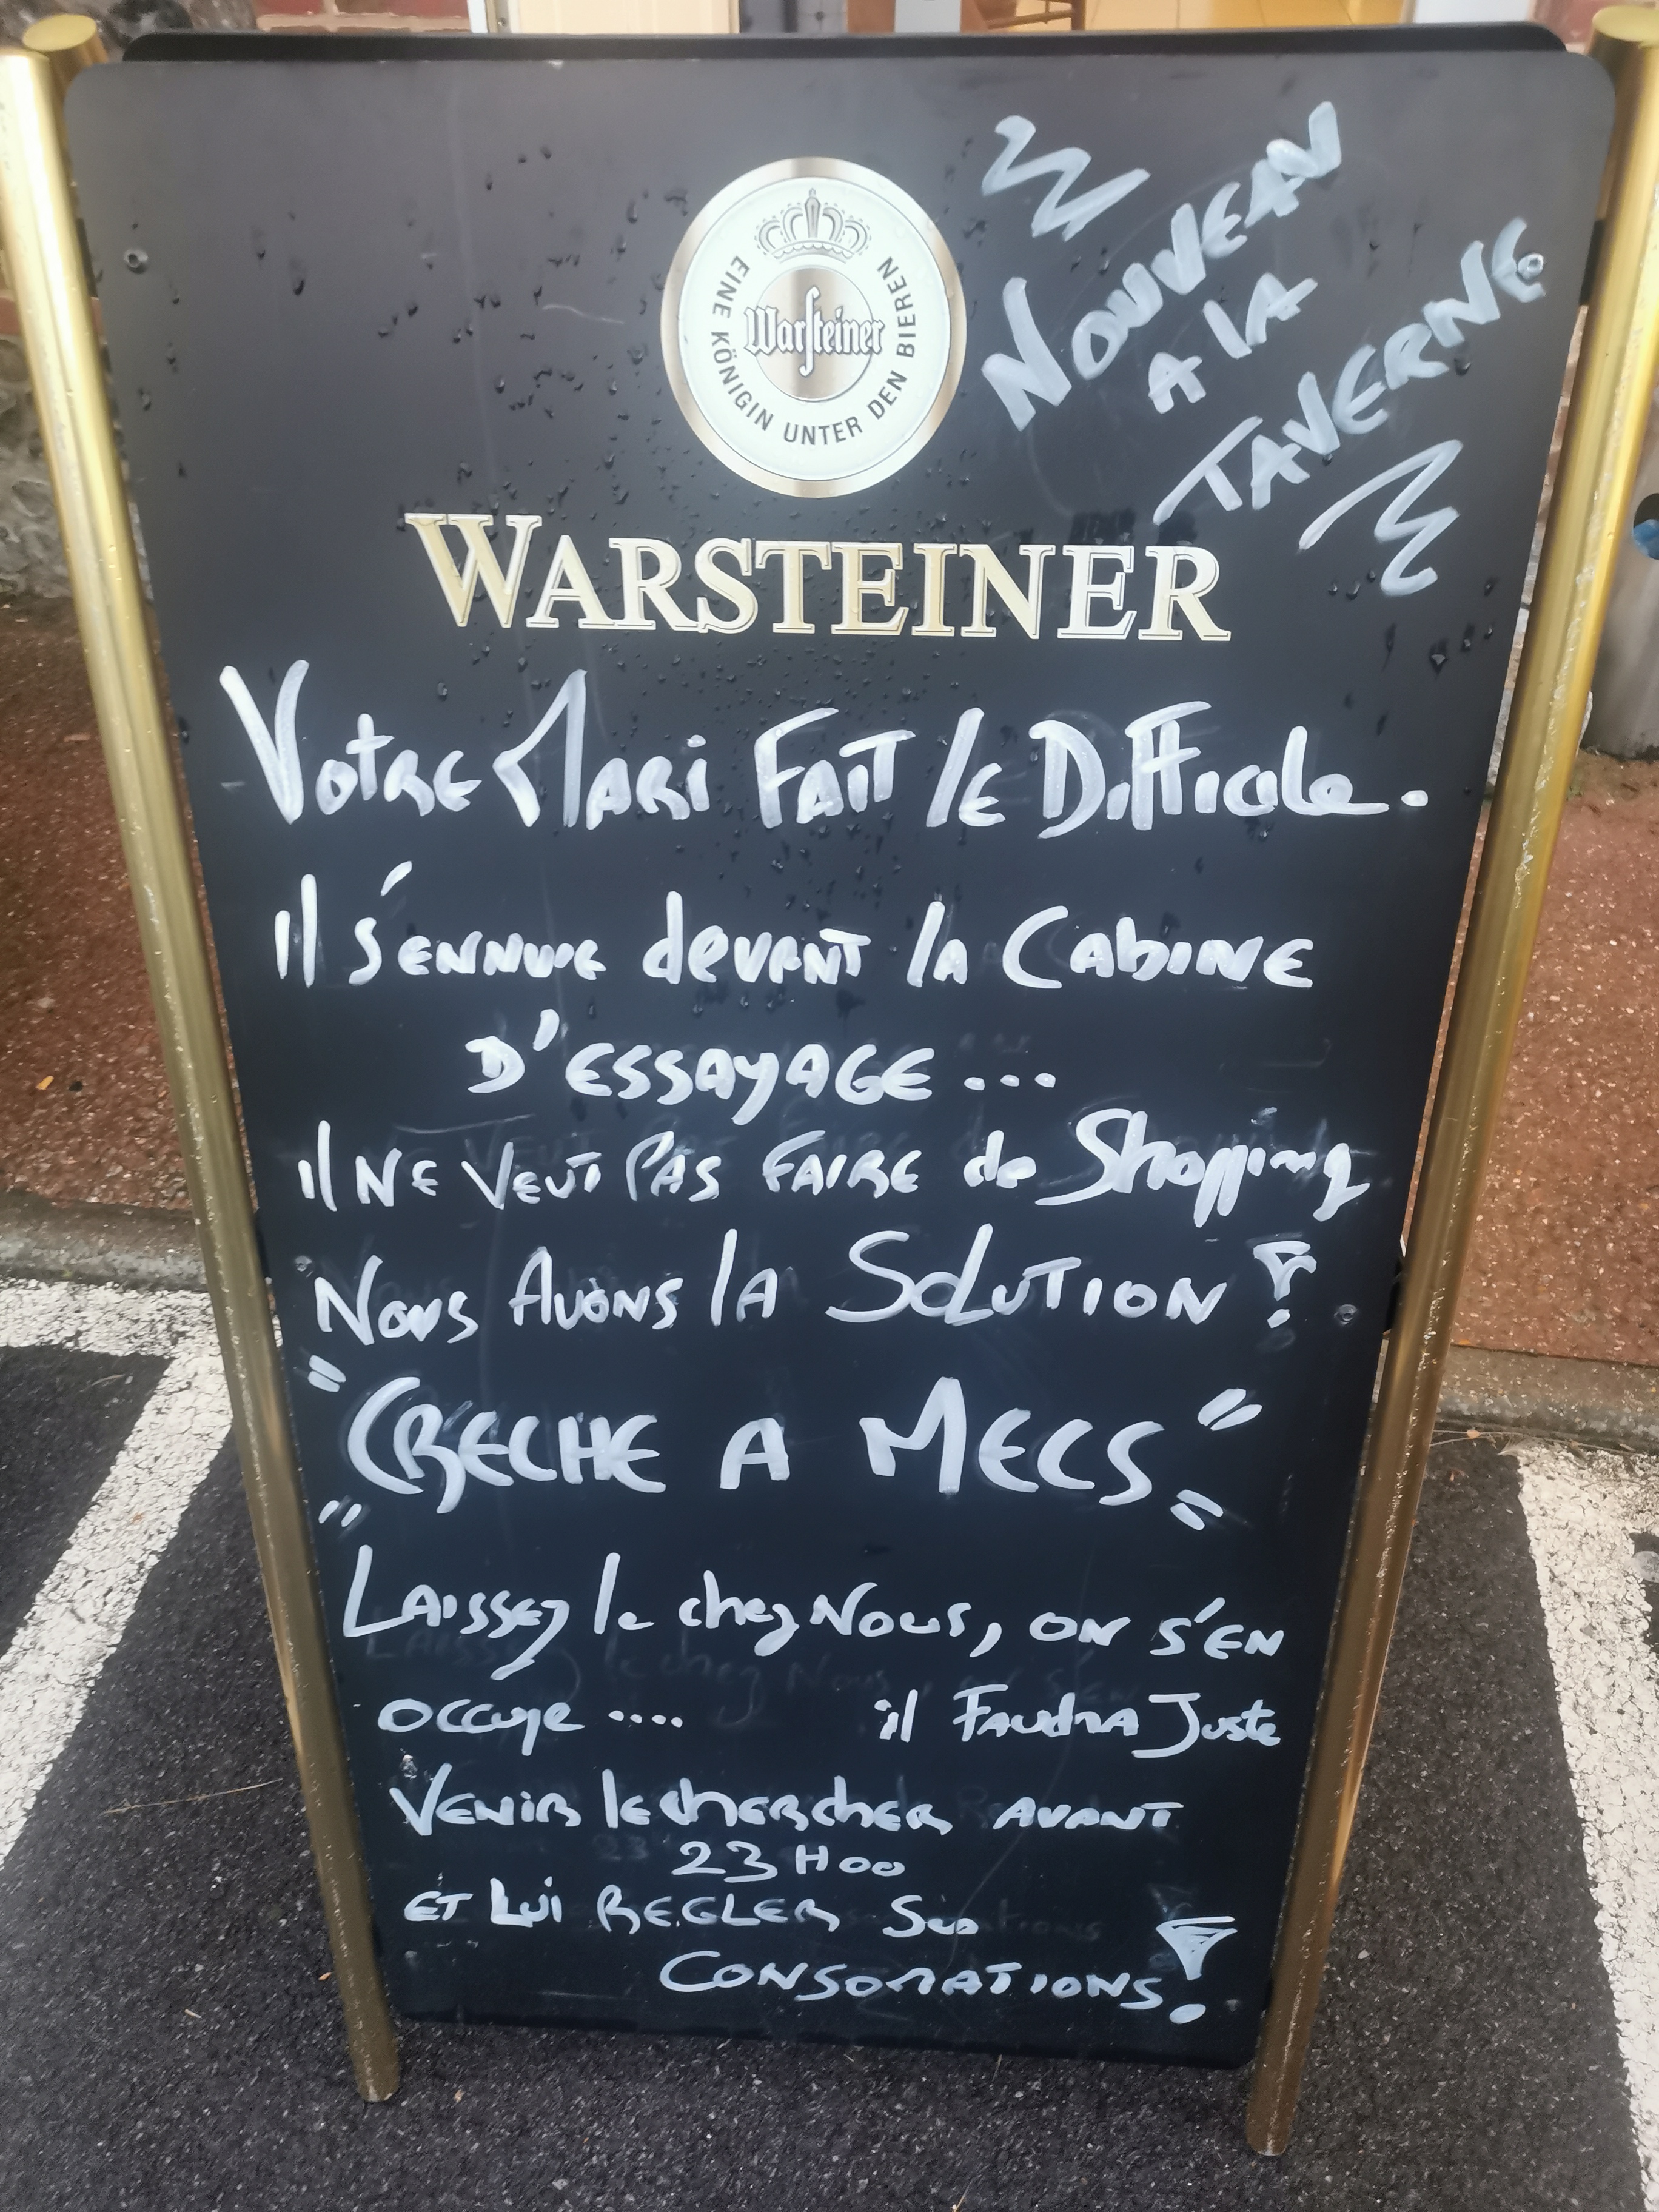 NOUVEAU
A LA
TAVERNE
EINE KÖNIGIN UNTER DEN BIEREN
Warsteiner
WARSTEINER
Votre Mari Fait le Difficile.
Il s'ennuie devant la Cabine
D'ESSAYAGE ...
il NE Veut PAS FAIRE de Shopping
Nous Avons la Solution !
"CRECHE A MECS"
Laissez le chez Nous, on s'en
occupe .... il Faudra Juste
Venir le chercher avant
23H00
ET Lui REGLER Ses
CONSOMATIONS !